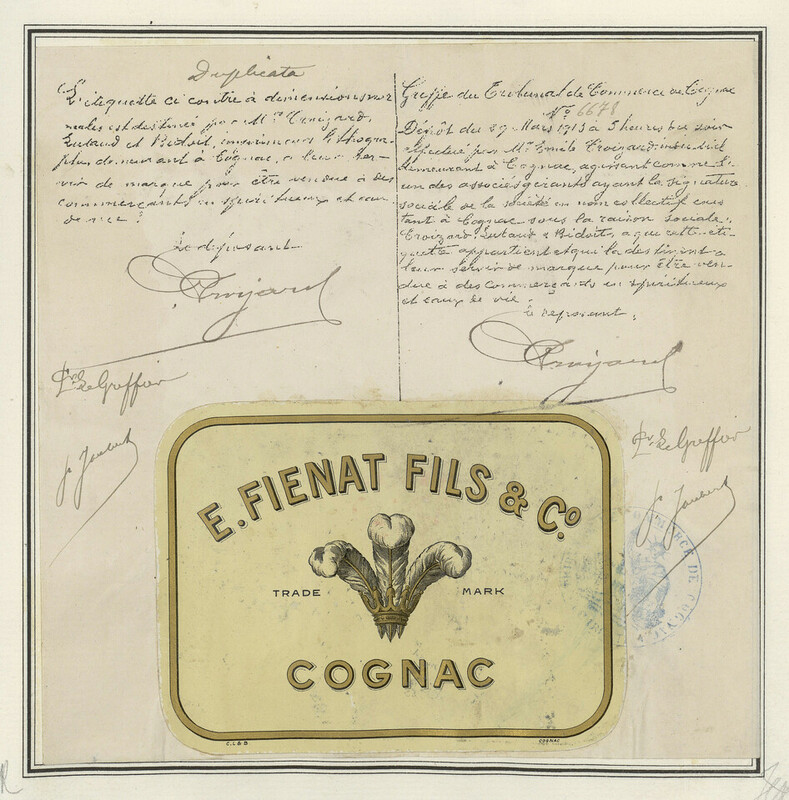 Duplicata
L'étiquette ci contre à dimensions nor
males est destinée par MM. Croizard,
Lutaud et Bidoit, imprimeurs lithogra-
phes demeurant à Cognac, à leur ser-
vir de marque pour être vendue à des
commerçants en spiritueux et eaux
de vie.
Le déposant
Croizard
Pr. Le Greffier
J. Joubert
Greffe du Tribunal de Commerce de Cognac
No 6678
Dépôt du 27 Mars 1913 à 5 heures du soir
effectué par Mr. Emile Croizard,
demeurant à Cognac, agissant comme l'
un des associés gérants ayant la signature
sociale de la société en nom collectif exis
tant à Cognac sous la raison sociale,
Croizard, Lutaud & Bidoit, à qui cette éti-
quette appartient et qui la destinent à
leur servir de marque pour être ven-
due à des commerçants en spiritueux
et eaux de vie.
Le déposant,
Croizard
Pr. Le Greffier
J. Joubert
E. FIENAT FILS & Co
TRADE MARK
COGNAC
C.L&B COGNAC
DE COGNAC